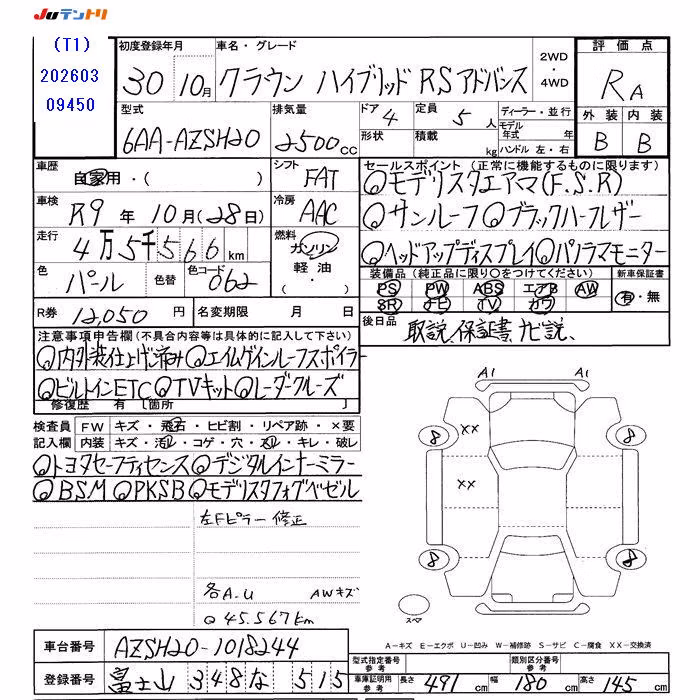 Juテントリ
(T1)
202603
09450
初度登録年月
30年10月
車名・グレード
クラウン ハイブリッド RSアドバンス
2WD・4WD
評価点
RA
外装 内装
B B
型式
6AA-AZSH20
排気量
2500cc
ドア 4
形状
定員 5人
積載 kg
ディーラー・並行
モデル年式 年
ハンドル 左・右
車歴
自家用・( )
シフト
FAT
車検
R9年10月(28日)
冷房
AAC
走行
4万5千566km
燃料
ガソリン
軽油・
色
パール
色替
色コード
062
R券 12,050円
名変期限 月 日
セールスポイント(正常に機能するものに限ります)
◎モデリスタエアロ(F.S.R)
◎サンルーフ◎ブラックハーフレザー
◎ヘッドアップディスプレイ◎パノラマモニター
装備品(純正品に限り○をつけてください)
PS PW ABS エアB AW
SR ナビ TV カワ
新車保証書
有・無
後日品
取説、保証書、ナビ説、
注意事項申告欄(不具合内容等は具体的に記入して下さい)
◎内外装仕上げ済み◎エイムゲインルーフスポイラ
◎ビルトインETC◎TVキット◎レーダークルーズ
修復歴 有 [箇所 ]
検査員記入欄
FW キズ・飛石・ヒビ割・リペア跡・×要
内装 キズ・汚レ・コゲ・穴・スレ・キレ・破レ
◎トヨタセーフティセンス◎デジタルインナーミラー
◎BSM◎PKSB◎モデリスタフォグベゼル
左Fピラー修正
各A.U AWキズ
Q 45.567km
A1 A1
8 XX 8
XX
8 8
スペア
A-キズ E-エクボ U-凹み W-補修跡 S-サビ C-腐食 XX-交換済
車台番号 AZSH20-1018244
登録番号 富士山 348な 515
型式指定番号 参考
類別区分番号 参考
車庫証明用 参考
長さ 491cm 幅 180cm 高さ 145cm